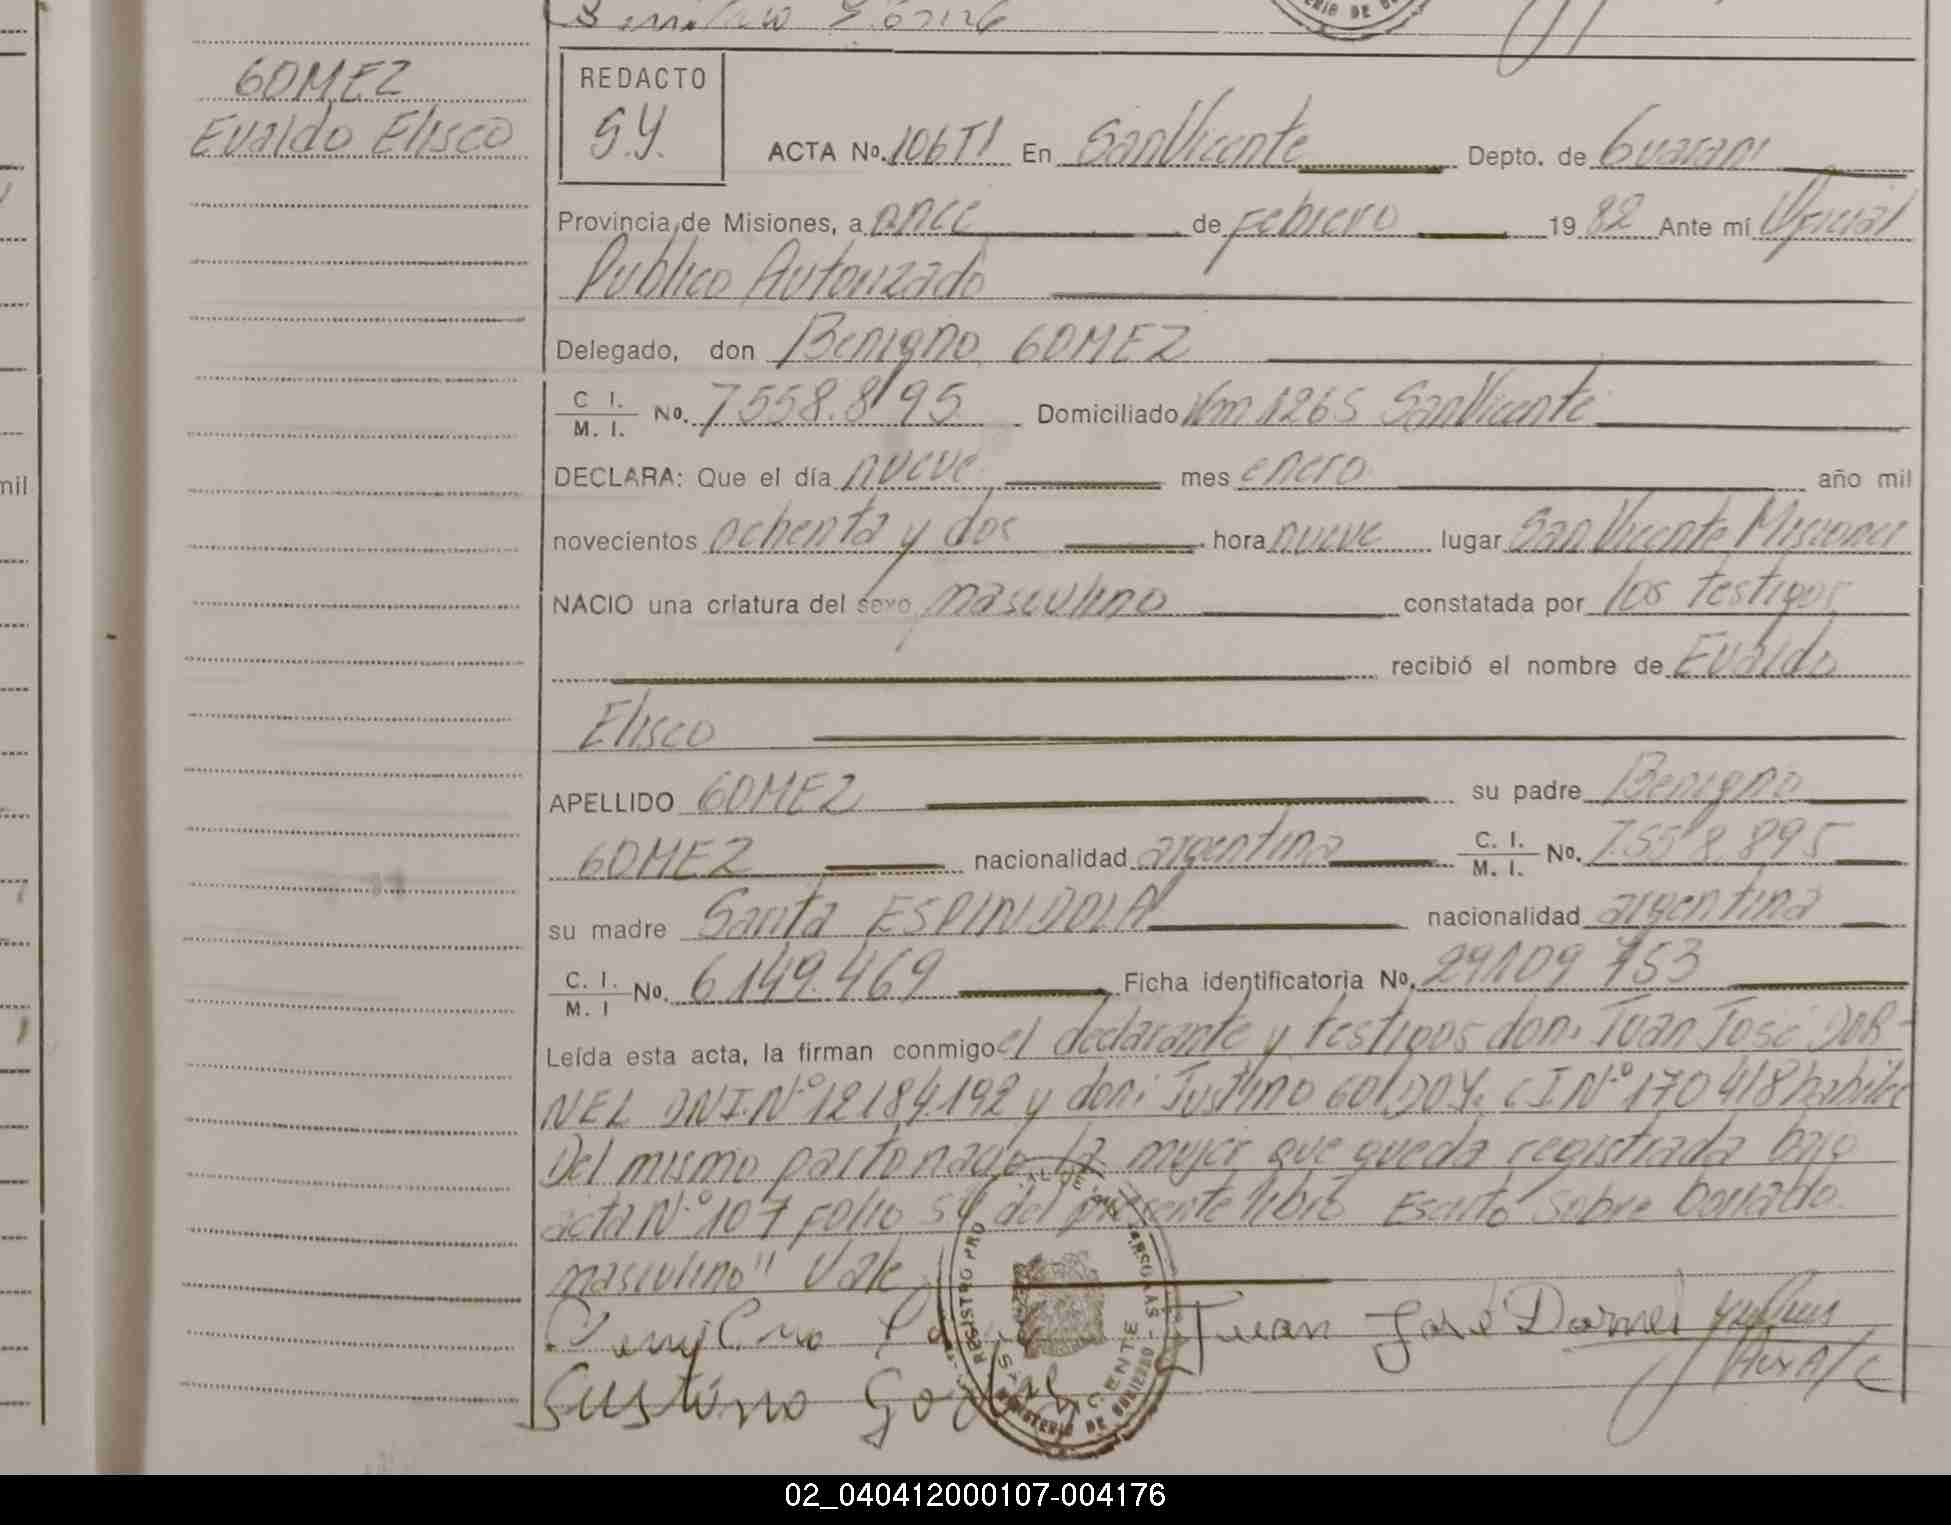 GOMEZ
Evaldo Eliseo
REDACTO
S.Y.
ACTA No. 106 T1 En San Vicente Depto. de Guarani
Provincia de Misiones, a once de Febrero 19 82 Ante mí Oficial
Publico Autorizado
Delegado, don Benigno GOMEZ
C I. M. I. No. 7558.895 Domiciliado Km 1265 San Vicente
DECLARA: Que el día nueve mes enero año mil
novecientos ochenta y dos hora nueve lugar San Vicente Misiones
NACIO una criatura del sexo masculino constatada por los testigos
recibió el nombre de Evaldo
Eliseo
APELLIDO GOMEZ su padre Benigno
GOMEZ nacionalidad argentina C. I. M. I. No. 7.558.895
su madre Santa ESPINDOLA nacionalidad argentina
C. I. M. I No. 6.149.469 Ficha identificatoria No. 29.109 753
Leída esta acta, la firman conmigo el declarante y testigos don: Juan José DOR-
NEL DNI.Nº 12.184.192 y don: Justino GODOY. CI Nº 170 418 habiles
Del mismo parto nacio la mujer que queda registrada bajo
acta Nº 107 Folio 54 del presente libro Escrito sobre borrado.
masculino" Vale
Juan José Dornel
Gustino
REGISTRO PRO AL DE LAS PERSONAS
MINISTERIO DE GOBIERNO
S. VICENTE
mil
02_040412000107-004176